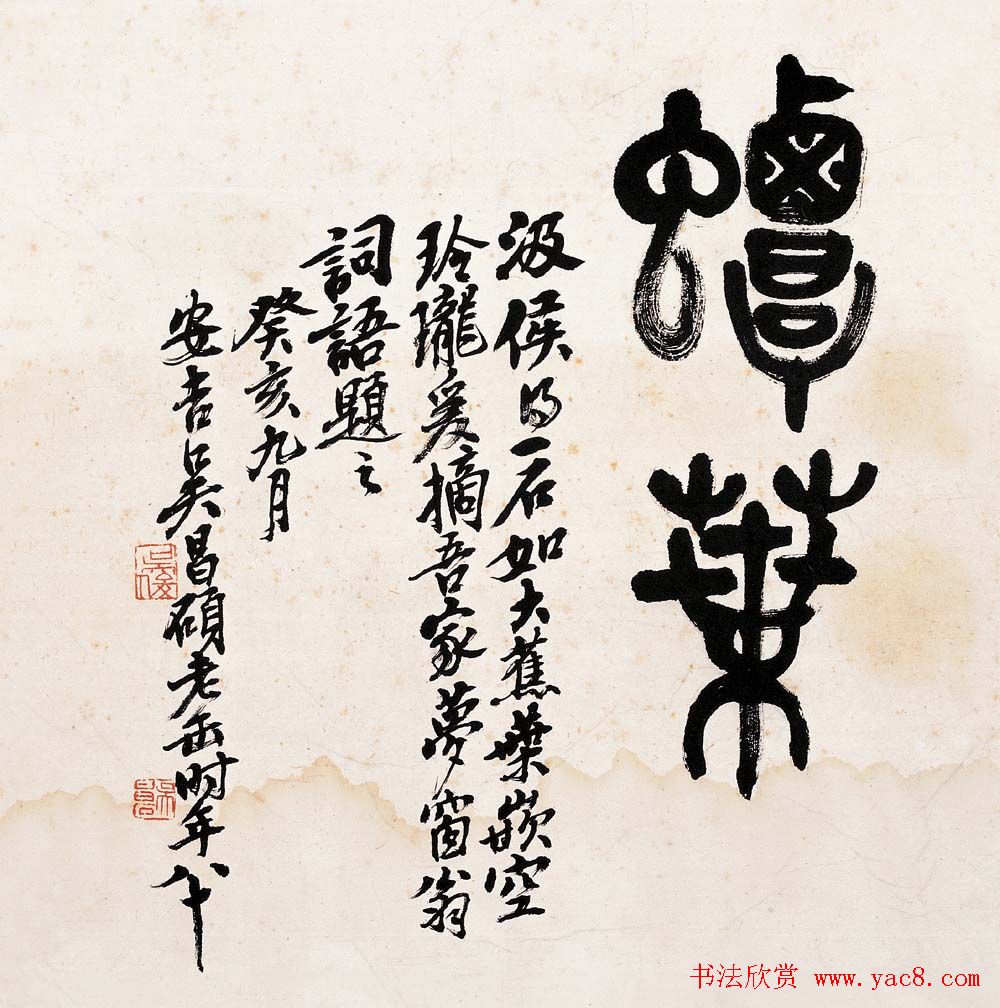 蟫葉
汲侯得一石如大蕉葉嵌空
玲瓏爰摘吾家夢窗翁
詞語題之
癸亥九月
安吉吳昌碩老缶時年八十
书法欣赏 www.yac8.com